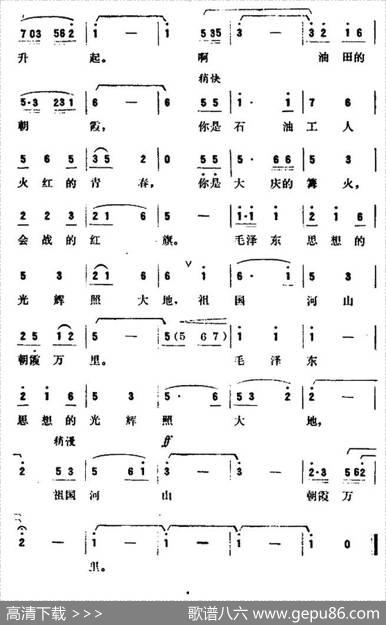 7 0 3 5 6 2 | 1 — | 1 — | 5 3 5 3 — | 3 2 1 6
升 起。 啊 油田的
稍快
5·3 2 3 1 | 6 — | 6 — | 5 5 1· 1 | 7 6
朝 霞, 你是石油工人
5 6 5 | 3 5 2 | 0 5 5 | 5· 6 6 | 5 3
火红的青春, 你是大庆的篝火,
2 2 3 | 2 1 6 | 5 — | 1·1 1 | 2 1 6
会战的红旗。 毛泽东思想的
5 3 | 2 1 6 | 6 1 | 6· 1 | 5 3
光辉照大地,祖国河山
2 5 1 2 | 5 — | 5 (5 6 7) | 1 1 | 1
朝霞万里。 毛泽东
2 1 6 | 5 3 | 5· 6 | 5 3 2 | 2 —
思想的光辉照大地,
稍慢 ff
2 5 3 | 5 6 1 | 3 — | 3 — | 2·3 5 6 2
祖国河山 朝霞万
2 — | 1 — | 1 — | 1 — | 1 0
里。
高清下载 >>> 歌谱八六 www.gepu86.com